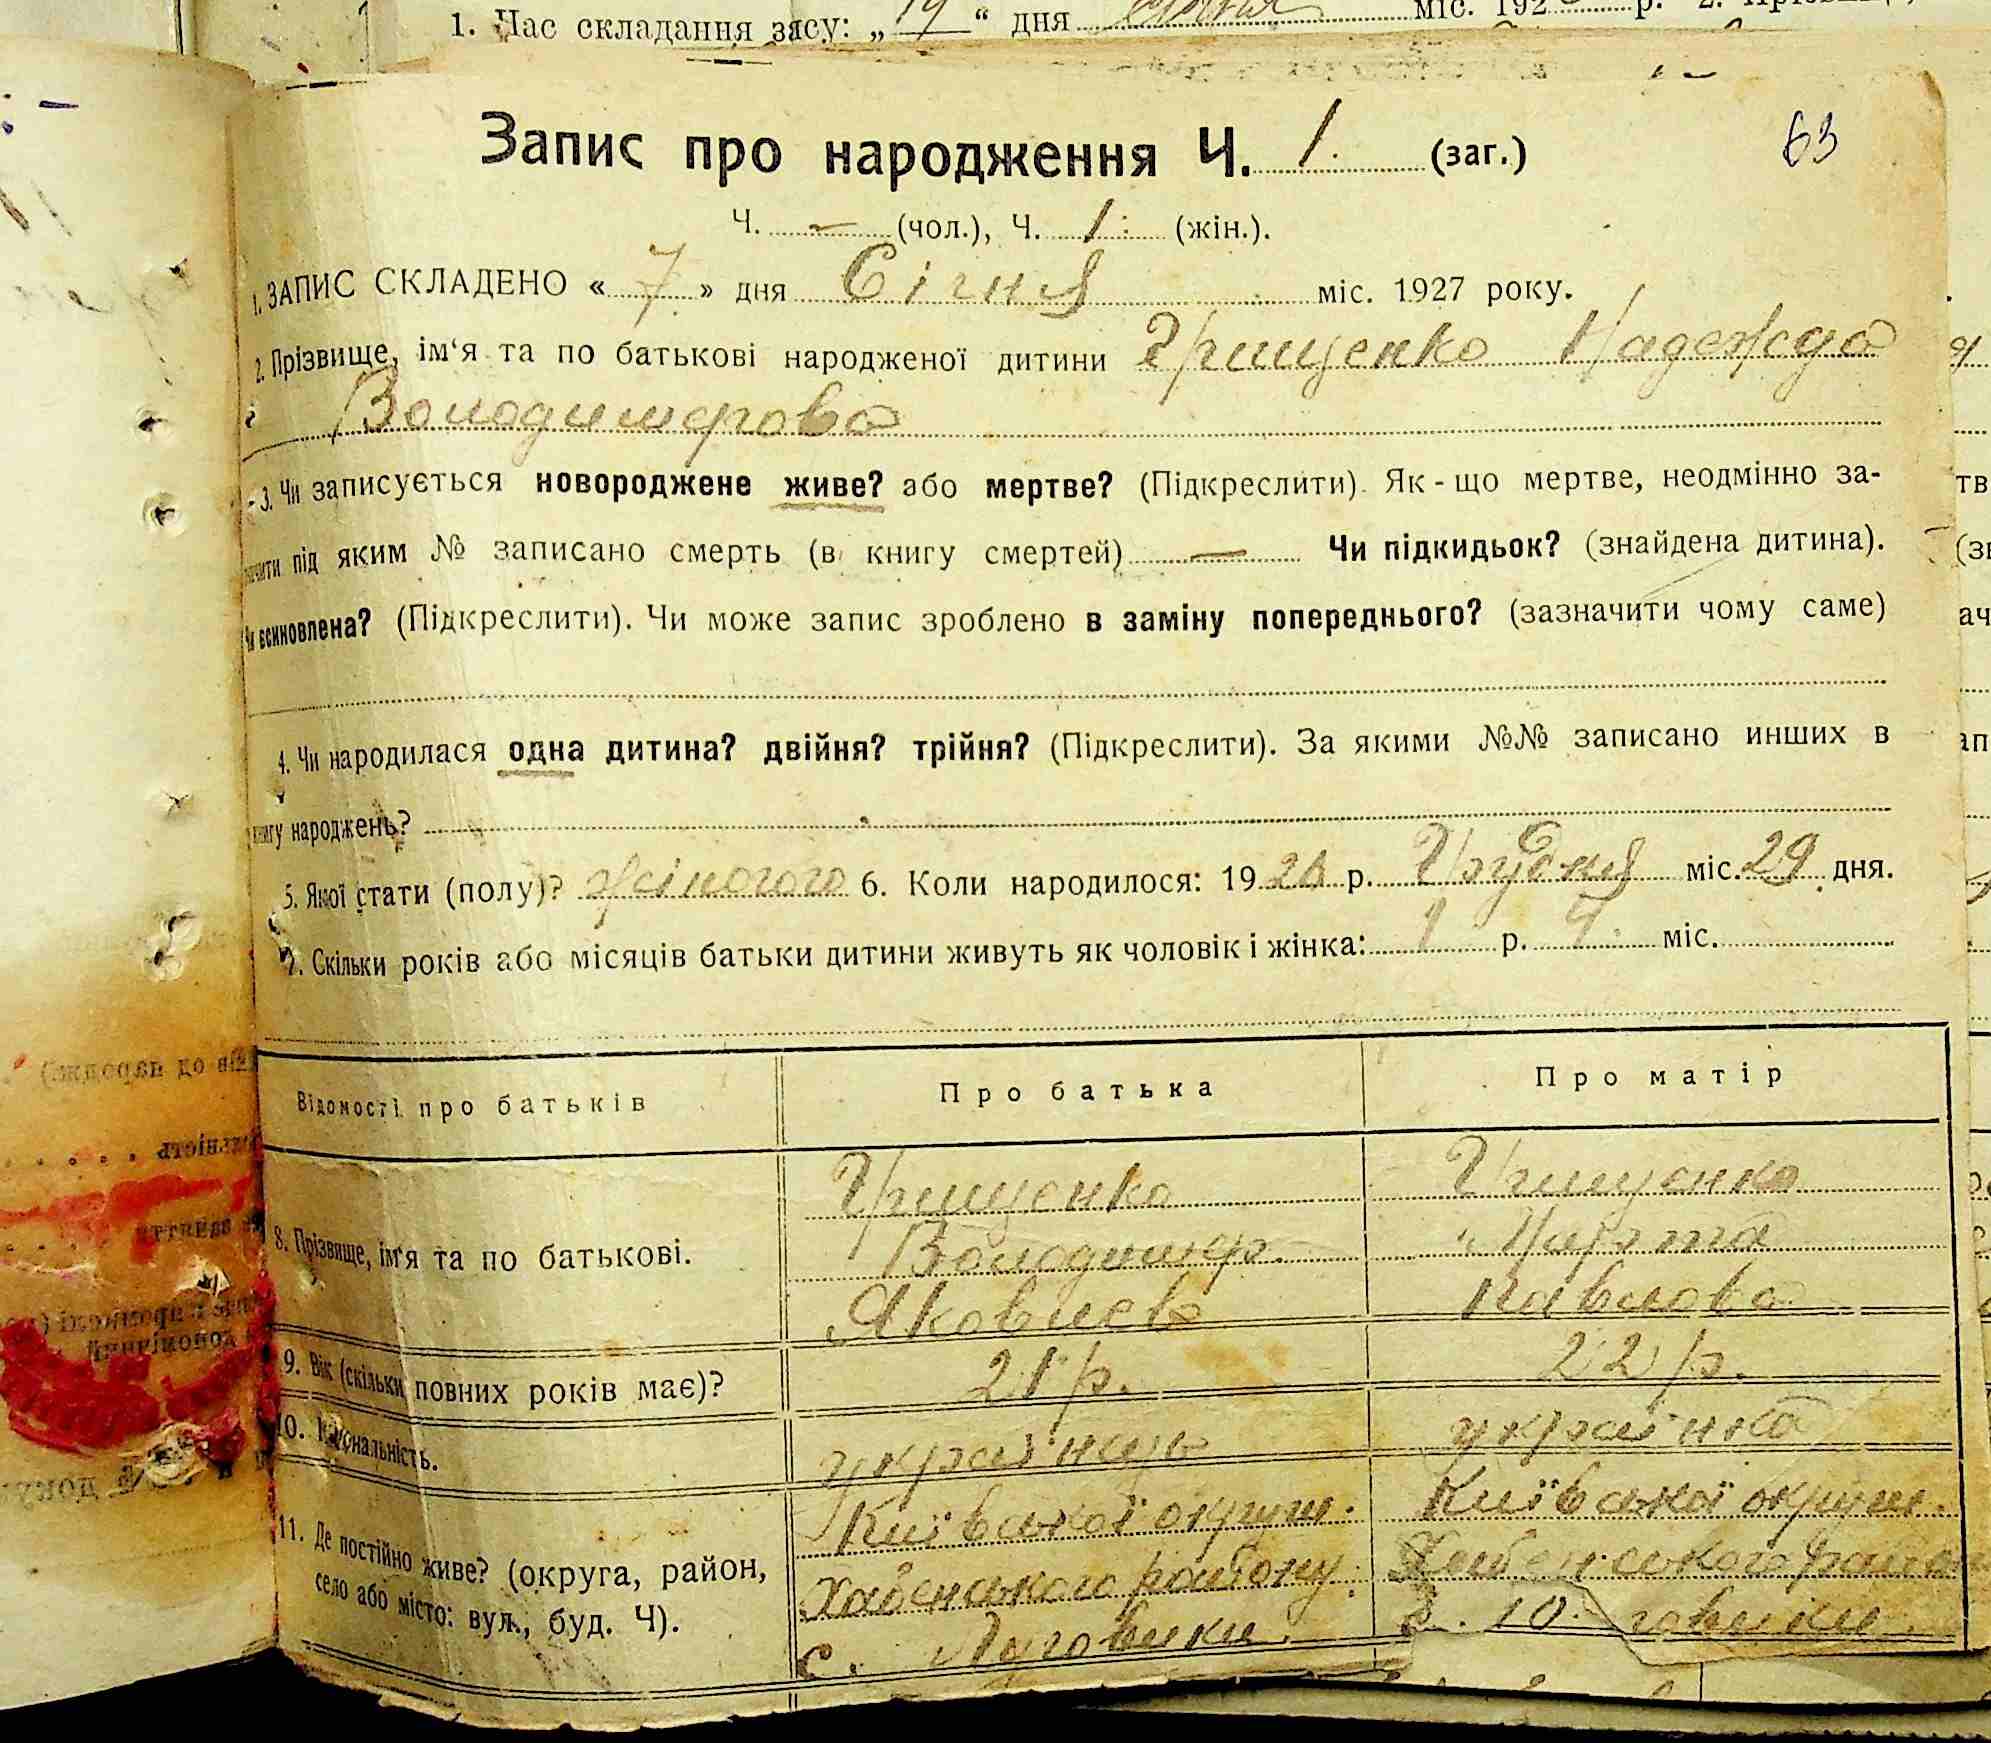 1. Час складання запису: „19“ дня міс. 192 р. 2.
63
Запис про народження Ч. 1. (заг.)
Ч. – (чол.), Ч. 1. (жін.).
1. ЗАПИС СКЛАДЕНО « 7 » дня Січня міс. 1927 року.
2. Прізвище, ім‘я та по батькові народженої дитини Грищенко Надежда
Володимерова
3. Чи записується новороджене живе? або мертве? (Підкреслити). Як-що мертве, неодмінно за-
значити під яким № записано смерть (в книгу смертей) — Чи підкидьок? (знайдена дитина).
Чи всиновлена? (Підкреслити). Чи може запис зроблено в заміну попереднього? (зазначити чому саме)
4. Чи народилася одна дитина? двійня? трійня? (Підкреслити). За якими №№ записано инших в
книгу народжень?
5. Якої стати (полу)? жіночого 6. Коли народилося: 1926 р. Грудня міс. 29 дня.
7. Скільки років або місяців батьки дитини живуть як чоловік і жінка: 1 р. 9. міс.
Відомості про батьків Про батька Про матір
8. Прізвище, ім‘я та по батькові.
Грищенко Грищенко
Володимер. Марта
Яковлев Павлова
9. Вік (скільки повних років має)? 21 р. 22 р.
10. Національність. українець українка
11. Де постійно живе? (округа, район,
село або місто: вул., буд. Ч).
Київської округи. Київської округи.
Хабенського району. Хабенського район
с. Луговики. говики.